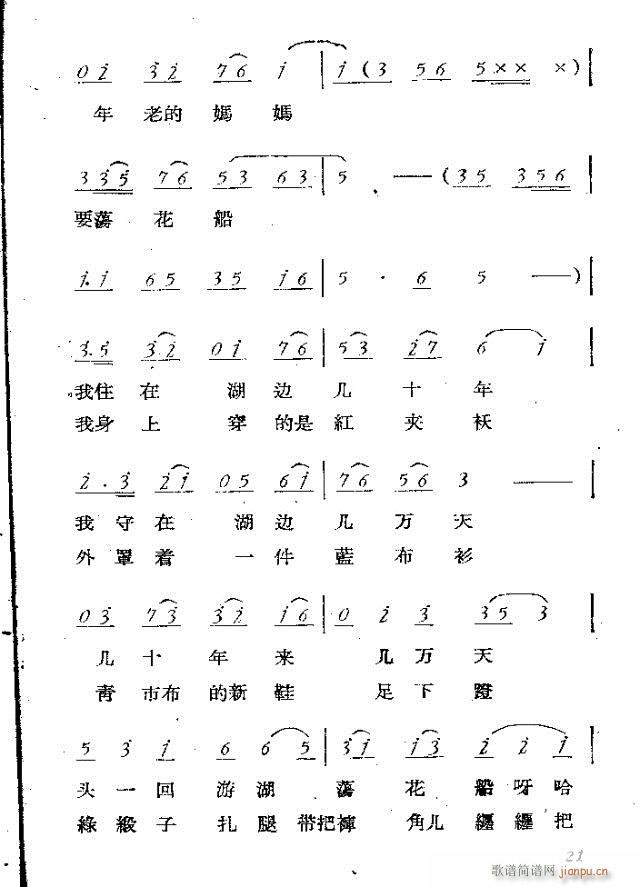 0 i 3 i 7 6 i | i ( 3 5 6 5 × × × )
年 老的 媽 媽
3 3 5 7 6 5 3 6 3 | 5 · —— ( 3 5 3 5 6
要蕩 花 船
i. i 6 5 3 5 i 6 | 5 · 6 5 —— )
3. 5 3 2 0 i 7 6 | 5 3 2 7 6 i
我住 在 湖 边 几 十 年
我身 上 穿 的是 紅 夹 袄
2 . 3 2 i 0 5 6 i | 7 6 5 6 3 ——
我 守 在 湖 边 几 万 天
外 罩 着 一 件 藍 布 衫
0 3 7 3 3 2 i 6 | 0 2 3 3 5 3
几 十 年 来 几 万 天
青 市布 的新 鞋 足 下 蹬
5 3 i 6 6 5 | 3 i i 3 2 2 i
头 一 回 游 湖 蕩 花 船 呀 哈
綠 緞 子 扎 腿 带把 褲 角儿 纏 纏 把
21
歌谱简谱网
jianpu.cn